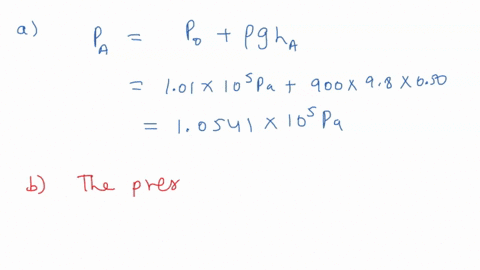 a) P_A = P_0 + ρgh_A
= 1.01 × 10^5 Pa + 900 × 9.8 × 0.50
= 1.0541 × 10^5 Pa
b) The pres